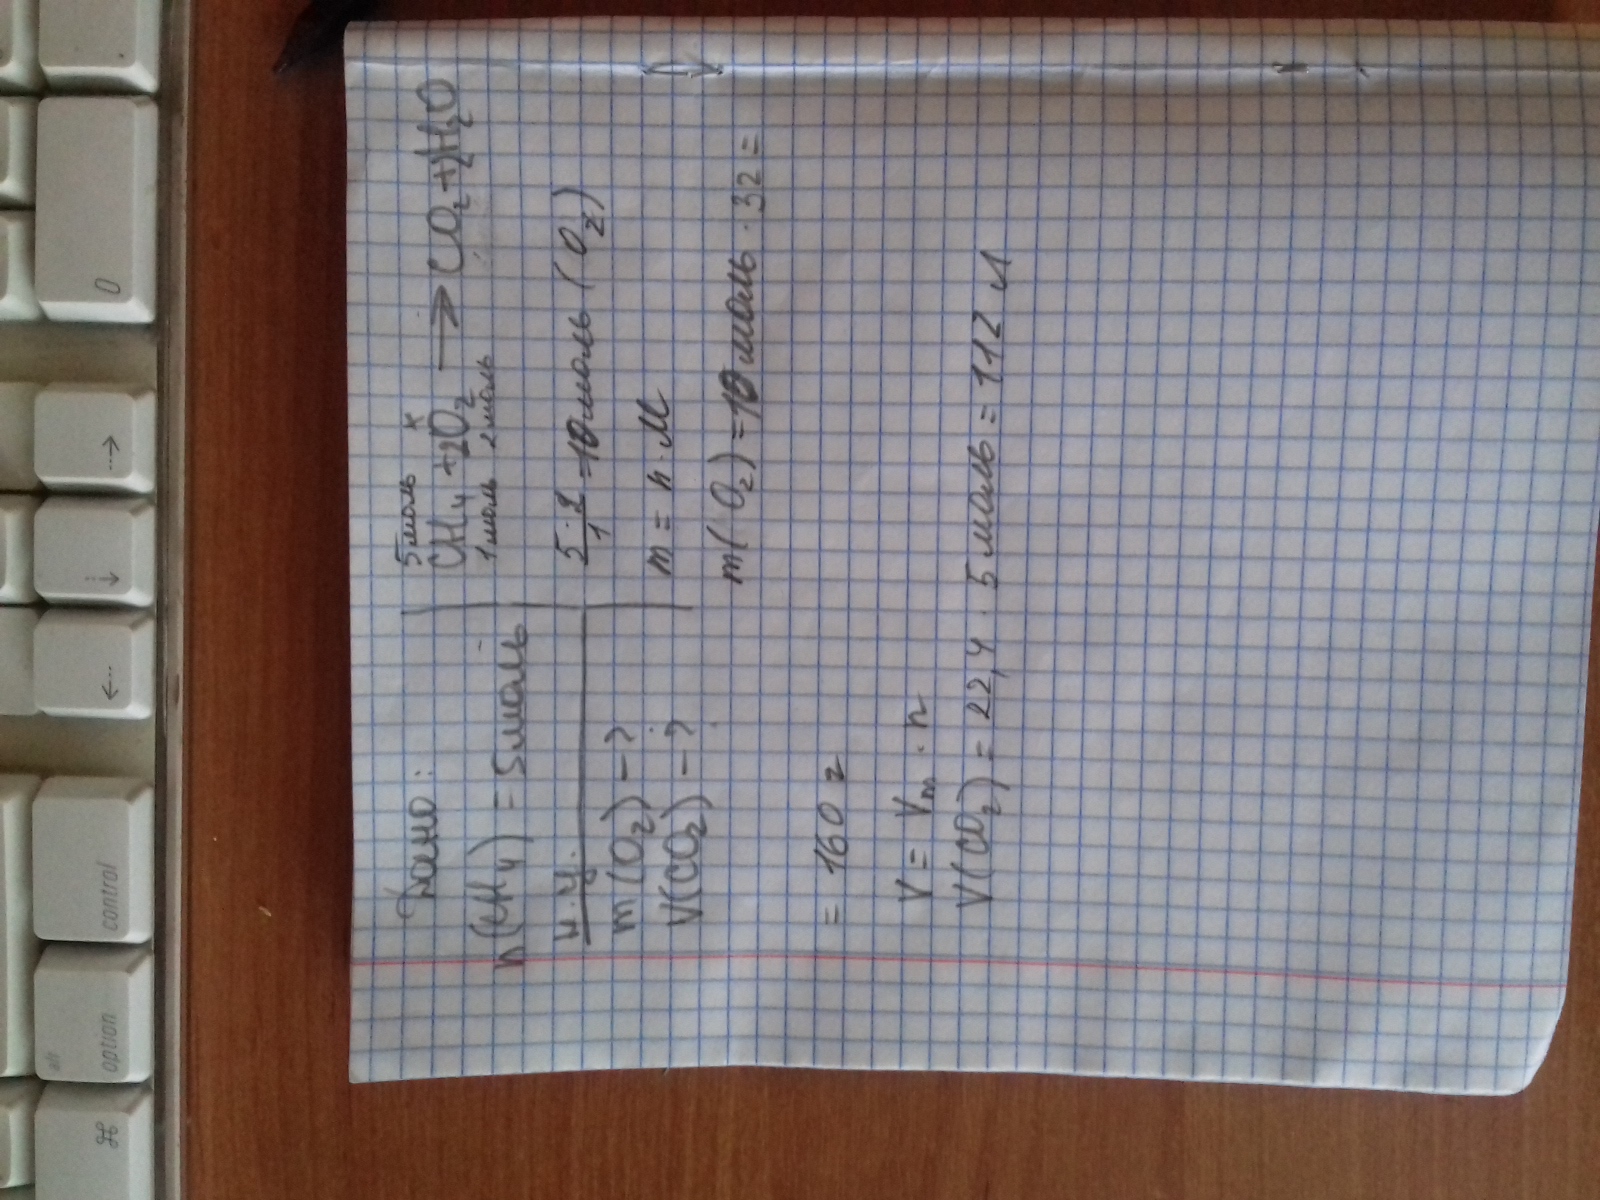 Дано:
n(CH₄) = 5моль
н.у.
m(O₂) –?
V(CO₂) –?
5моль x
CH₄ + 2O₂ ⟶ CO₂ + 2H₂O
1моль 2моль
5·2/1 = 10моль (O₂)
m = n · M
m(O₂) = 10моль · 32 =
= 160 г
V = Vm · n
V(CO₂) = 22,4 · 5моль = 112 л
0
→
↓
←
control
alt
option
⌘